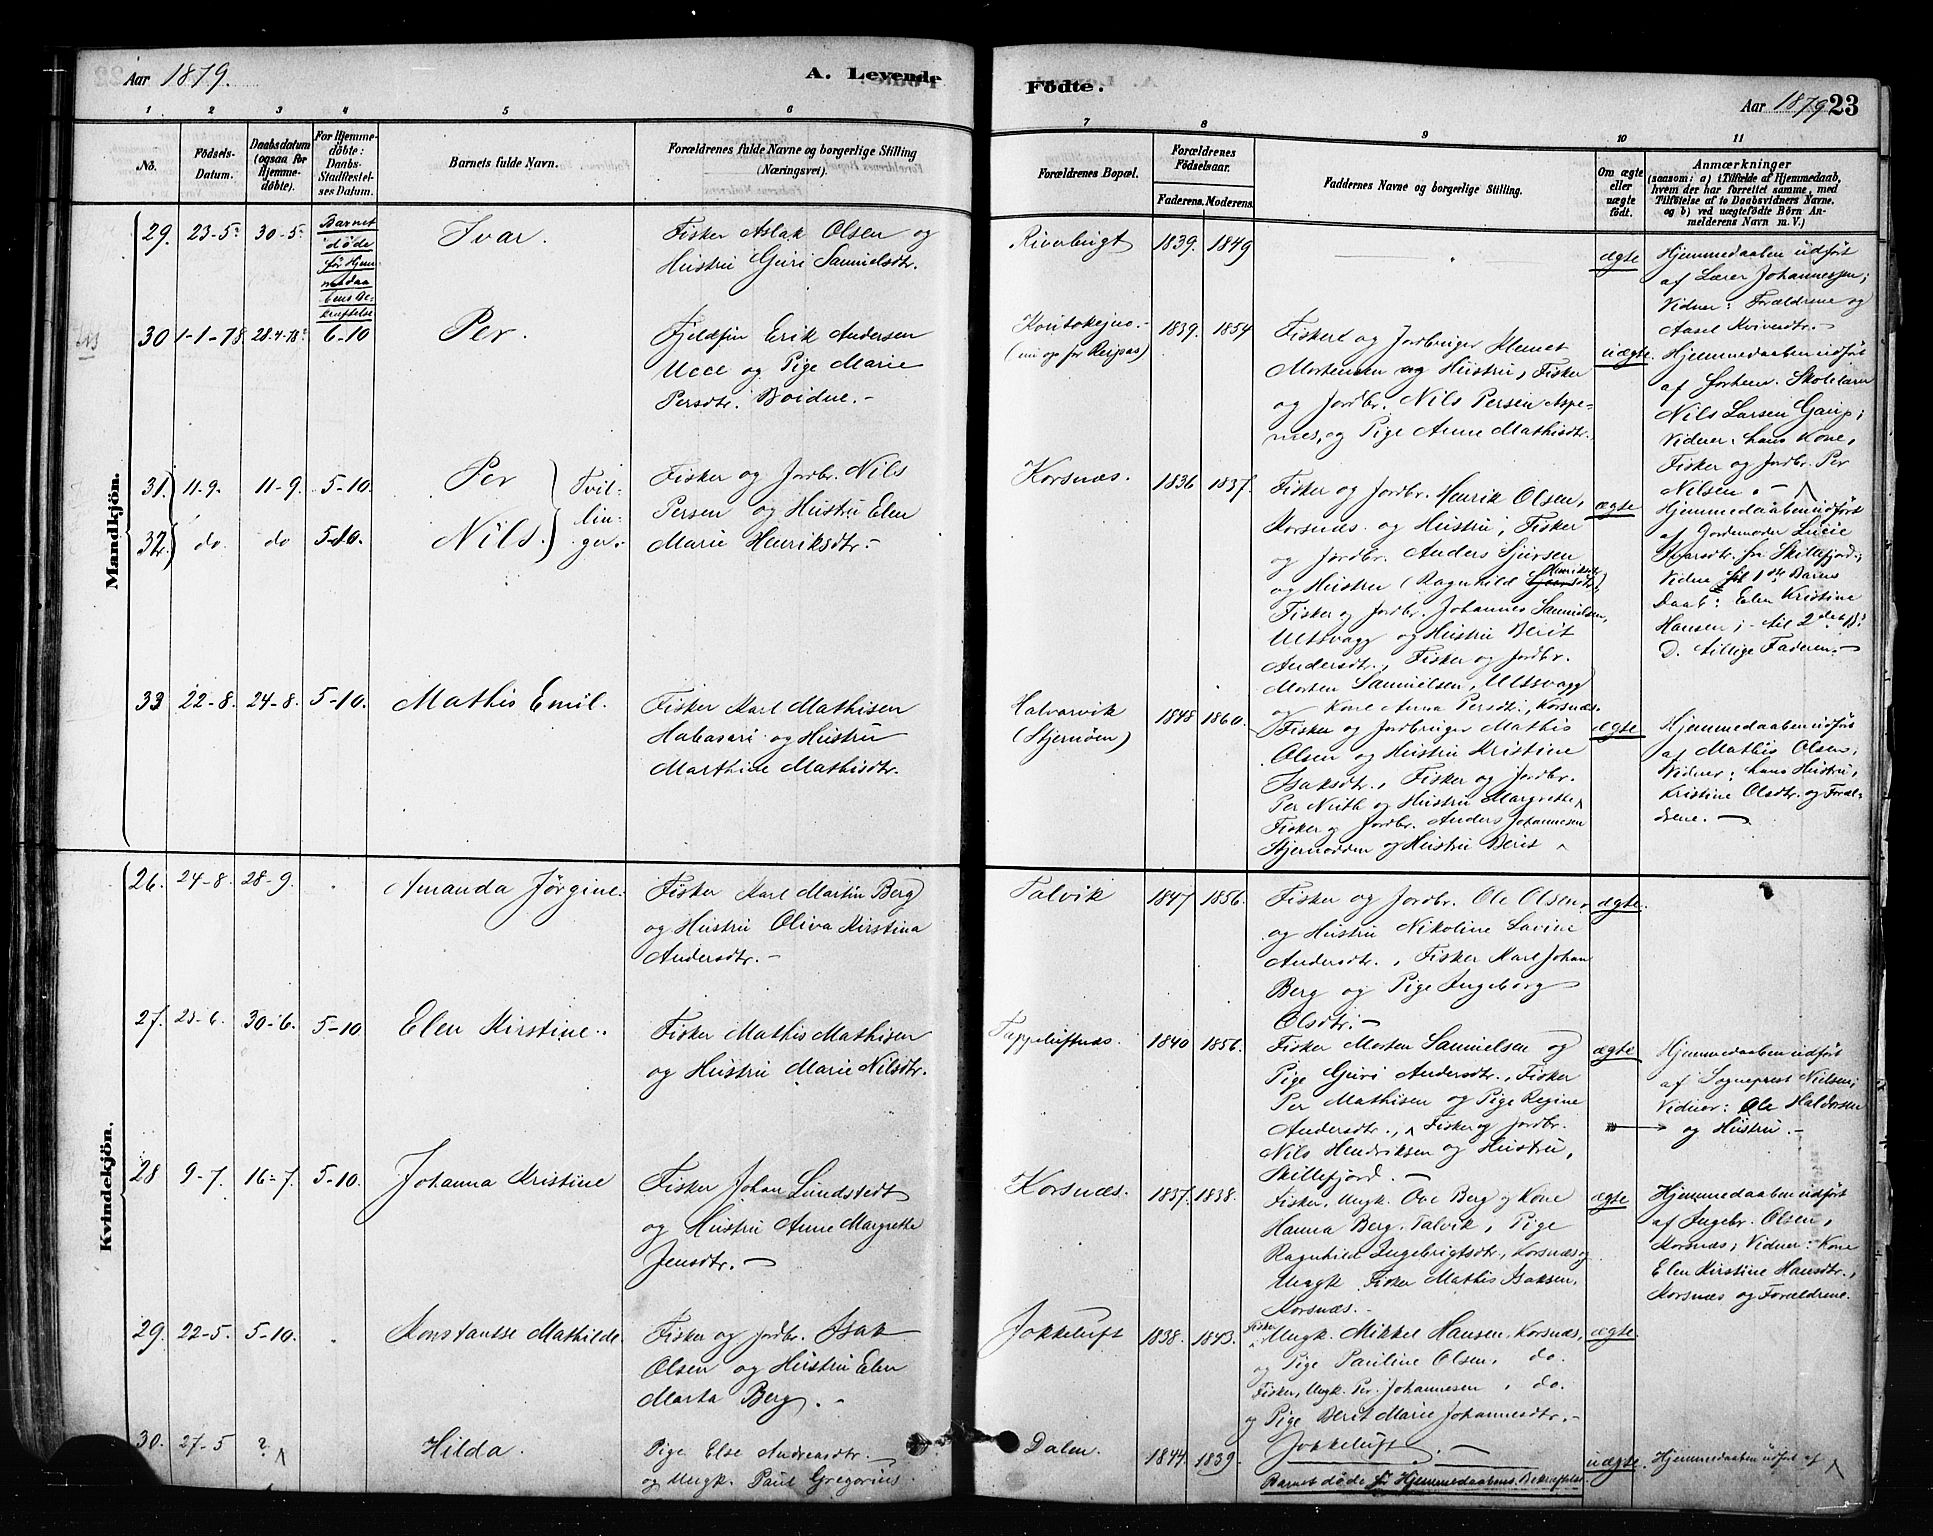 Aar 1879.
A. Levende
Fødte.
Aar 1879
23
1 2 3 4 5 6 7 8 9 10 11
No.
Fødsels-Datum.
Daabsdatum (ogsaa for Hjemmedøbte).
For Hjemmedøbte: Daabs-Stadfæstelses Datum.
Barnets fulde Navn.
Forældrenes fulde Navne og borgerlige Stilling (Næringsvei).
Forældrenes Bopæl.
Forældrenes Fødselsaar.
Faderens. Moderens.
Faddernes Navne og borgerlige Stilling.
Om ægte eller uægte født.
Anmærkninger
(saasom: a) i Tilfælde af Hjemmedaab,
hvem der har forrettet samme, med
Tilføielse af to Daabsvidners Navne.
og b) ved uægtefødte Børn An-
melderens Navn m. V.)
Mandkjön.
29. 23-5. 30-5.
Barnet
døde
før Hjem-
medaa-
bens Be-
kræftelse
Ivar.
Fisker Aslak Olsen og
Hustru Guri Samuelsdtr.
1839. 1849
ægte
Hjemmedaaben udført
af Lærer Johannessen;
Vidner: Forældrene og
30 1-1-78 28-4-78 6-10
Per.
Fjeldfin Erik Andersen
Ucce og Pige Marie
Persdtr. Boidne.-
Koutokejno.-
1839. 1854
Fisker og Jordbruger Klemet
Mortensen og Hustru, Fisker
og Jordbr. Nils Persen Aspe-
nes, og Pige Anne Mathisdtr.
uægte.
Hjemmedaaben udført
af forhen. Skolelærer
Nils Larsen Gaup;
Vidner: hans Kone,
Fisker og Jordbr. Per
Nilsen.-
31. 11-9. 11-9. 5-10.
Per
32. do. do 5-10.
Nils.
Tvil-
lin-
ger.
Fisker og Jordbr. Nils
Persen og Hustru Elen
Marie Henriksdtr.-
Korsnæs.
1836 1837.
Fisker og Jordbr. Henrik Olsen,
Korsnæs og Hustru, Fisker
og Jordbr. Anders Sjursen
og Hustru (Ragnhild Henriksdtr.)
Fisker og Jordbr. Johannes Samuelsen,
Ultsvagg og Hustru Berit
Andersdtr., Fisker og Jordbr.
Morten Samuelsen, Ultsvagg
og Kone Anna Persdtr., Korsnæs.
ægte
Hjemmedaaben udført
af Gordemoder Lucie
Ivarsdtr. fra Skillefjord;
Vidne til 1ste Barns
Daab: Elen Kristine
Hansen; - til 2det B.s
D. tillige Faderen.-
33 22-8. 24-8. 5-10.
Mathis Emil.
Fisker Karl Mathisen
Habasari og Hustru
Marthine Mathisdtr.
Halvarvik
(Stjernøen)
1848 1860.
Fisker og Jordbruger Mathis
Olsen og Hustru Kristine
Isaksdtr., Fisker og Jordbr.
Per Nuth og Hustru Margrethe
Fisker og Jordbr. Anders Johannesen
Stjernodden og Hustru Berit
ægte
Hjemmedaaben udført
af Mathis Olsen;
Vidner: hans Hustru,
Kristine Olsdtr. og Foræl-
drene.-
Kvindekjön.
26. 24-8. 28-9.
Amanda Jørgine.
Fisker Karl Martin Berg
og Hustru Oliva Kirstina
Andersdtr.-
Talvik
1847 1856.
Fisker og Jordbr. Ole Olsen,
og Hustru Nikoline Lavine
Andersdtr., Fisker Karl Johan
Berg og Pige Ingeborg
Olsdtr.-
ægte.
27. 25-6. 30-6. 5-10.
Elen Kirstine.
Fisker Mathis Mathisen
og Hustru Marie Nilsdtr.
Tappeluftnæs.
1840 1856.
Fisker Morten Samuelsen og
Pige Guri Andersdtr., Fisker
Per Mathisen og Pige Regine
Andersdtr., Fisker og Jordbr.
Nils Hendriksen og Hustru,
Skillefjord.-
ægte
Hjemmedaaben udført
af Sogneprest Nielsen;
Vidner: Ole Haldorsen
og Hustru.-
28 9-7. 16-7. 5-10.
Johanna Kristine
Fisker Johan Lundstedt
og Hustru Anne Margrethe
Jensdtr.-
Korsnæs.
1837. 1838.
Fisker, Ungk. Ove Berg og Kone
Hanna Berg. Talvik, Pige
Ragnhild Ingebrigtsdtr., Korsnæs og
Ungk. Fisker Mathis Isaksen,
Korsnæs.-
ægte
Hjemmedaaben udført
af Ingebr. Olsen,
Korsnæs; Vidner: Kone
Elen Kirstine Hansdtr.,
Korsnæs og Forældrene.
29. 22-5. 5-10.
Konstantse Mathilde.
Fisker og Jordbr. Isak
Olsen og Hustru Elen
Marta Berg.-
Jokkeluft
1838. 1843.
Fisker Ungk. Mikkel Hansen, Korsnæs,
og Pige Pauline Olsen, do.
Fisker, Ungk. Per Johannesen, do.
og Pige Berit Marie Johannesdtr.-
Jokkeluft.-
ægte.
30. 27-5 ?
Hilda.
Pige Else Andreasdtr.
og Ungk. Paul Gregorius.
Dalen.
1844. 1839.
Barnet døde før Hjemmedaabens Bekræftelse.
uægte.
Hjemmedaaben udført af